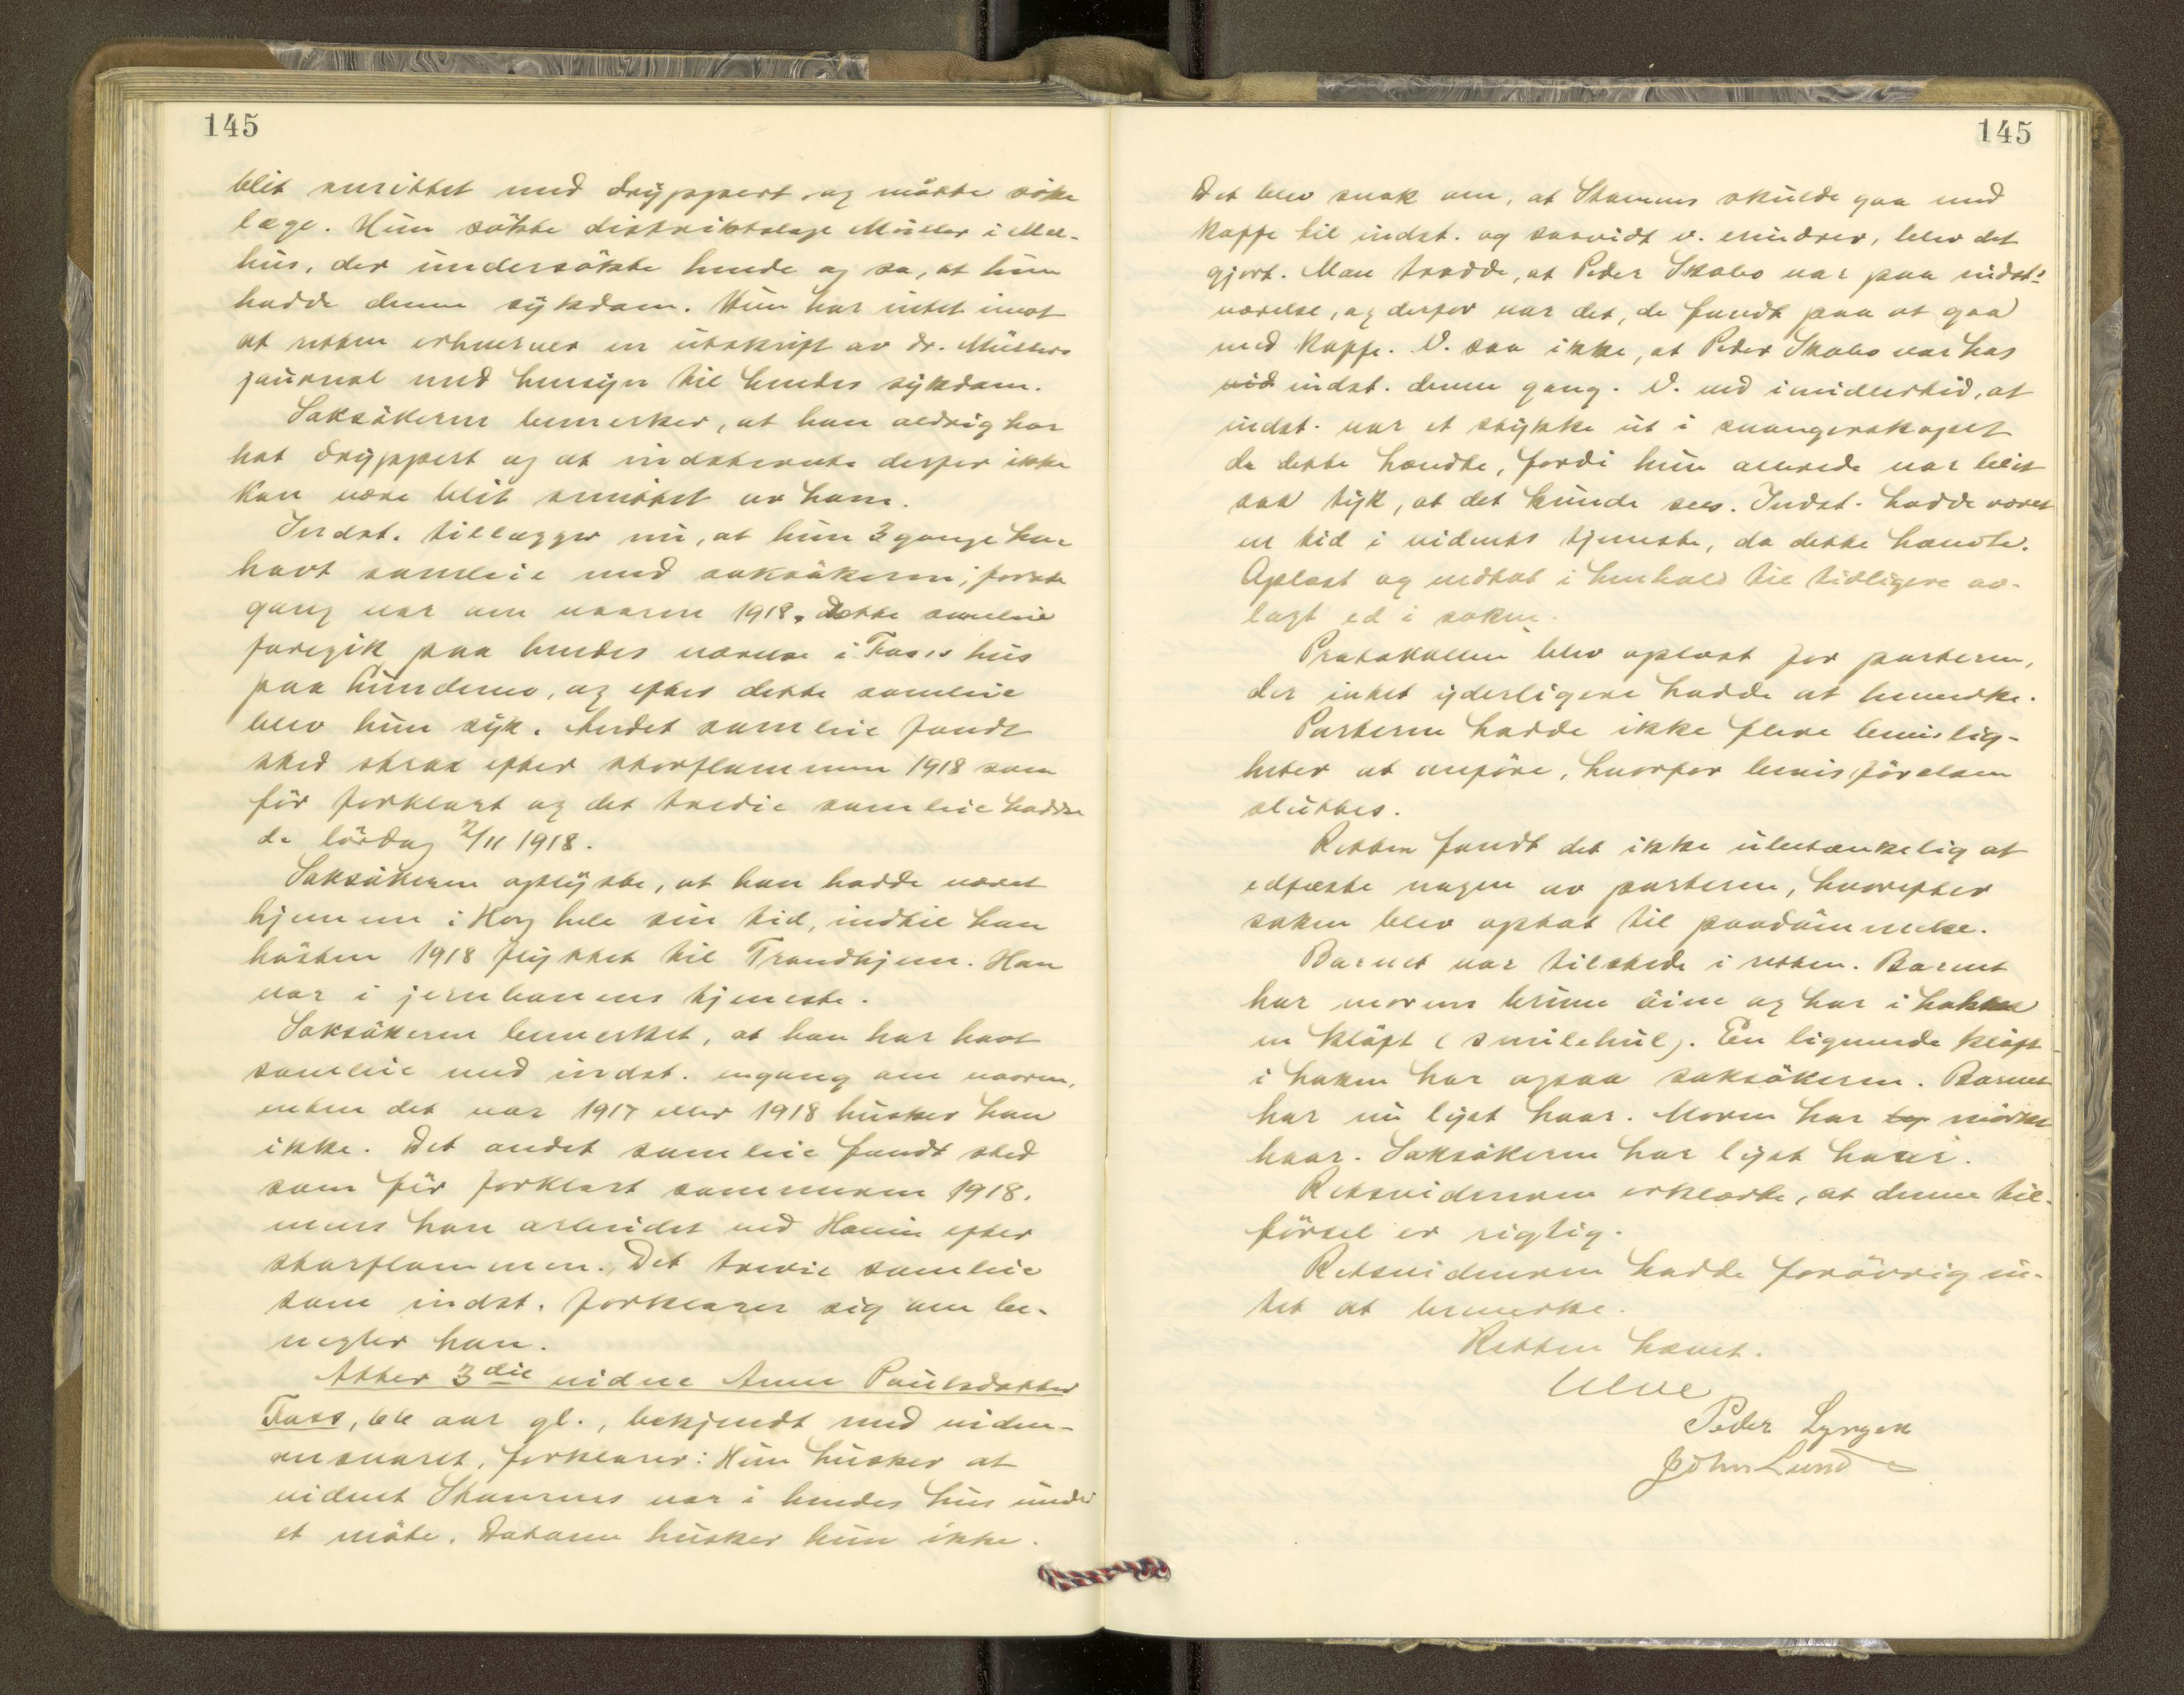 145
blit smittet med dryppert og måtte söke
læge. Hun sökte distriktslæge Müller i Mel-
hus, der undersökte hende og sa, at hun
hadde denne sykdom. Hun har intet imot
at retten erhverver en utskrift av dr. Müllers
journal med hensyn til hendes sykdom.
Saksökeren bemerker, at han aldrig har
hat dryppert og at indstevnte derfor ikke
kan være blit smittet av ham.
Indst. tillægger nu, at hun 3 gange har
havt samleie med saksökeren; förste
gang var om vaaren 1918. Dette samleie
foregik paa hendes værelse i Foss's hus
paa Lundemo, og efter dette samleie
blev hun syk. Andet samleie fandt
sted strax efter storflommen 1918 som
för forklart og det tredie samleie hadde
de lördag 2/11 1918.
Saksökeren oplyste, at han hadde været
hjemme i Horg hele sin tid, indtil han
hösten 1918 flyttet til Trondhjem. Han
var i jernbanens tjeneste.
Saksökeren bemerket, at han har havt
samleie med indst. engang om vaaren,
enten det var 1917 eller 1918 husker han
ikke. Det andet samleie fandt sted
som för forklart sommeren 1918.
mens han arbeidet ved Hovin efter
storflommen. Det tredie samleie
som indst. forklarer sig om be-
negter han.
Atter 3die vidne Anne Paulsdatter
Foss, 66 aar gl., bekjendt med vidne-
ansvaret, forklarer: Hun husker at
vidnet Stavrens var i hendes hus under
et möte. Datoen husker hun ikke.
145
Det blev snak om, at Stavrens skulde gaa med
kaffe til indst. og saavidt v. erindrer, blev det
gjort. Man trodde, at Peder Skabo var paa indst:
værelse, og derfor var det, de fandt paa at gaa
med kaffe. V. saa ikke, at Peder Skabo var hos
vid indst. denne gang. V. ved imidlertid, at
indst. var et stykke ut i svangerskapet
da dette hændte, fordi hun allerede var blit
saa tyk, at det kunde sees. Indst. hadde været
en tid i vidnets tjeneste, da dette hændte.
Oplæst og vedtat i henhold til tidligere av-
lagt ed i saken.
Protokollen blev oplæst for parterne,
der intet yderligere hadde at bemerke.
Parterne hadde ikke flere bevislig-
heter at anföre, hvorfor bevisförelsen
sluttes.
Retten fandt det ikke ubetænkelig at
edfæste nogen av parterne, hvorefter
saken blev optat til paadömmelse.
Barnet var tilstede i retten. Barnet
har morens brune öine og har i haken
en klöft (smilehul). En lignende klöft
i haken har ogsaa saksökeren. Barnet
har nu lyst haar. Moren har ly mörkt
haar. Saksökeren har lyst haar.
Retsvidnerne erklærte, at denne til-
försel er rigtig.
Retsvidnerne hadde forövrig in-
tet at bemerke.
Retten hævet.
Ulve
Peder Lyngen
John Lund